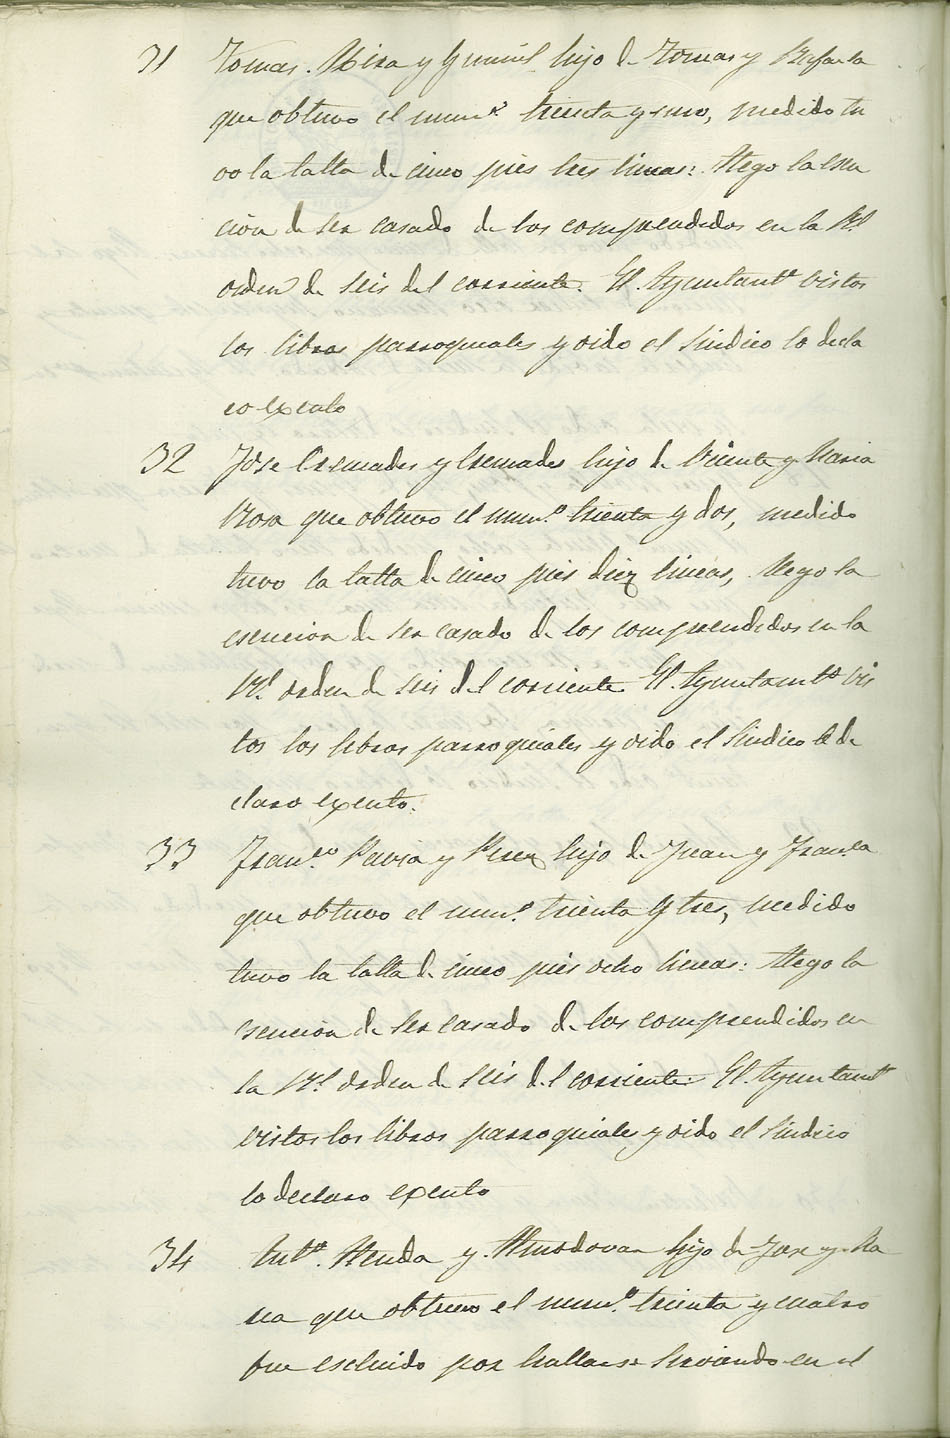 31 Tomas Mira y hijo de Tomas y Rafaela
que obtuvo el num.º treinta y uno, medido tu
vo la talla de cinco pies tres lineas: Alego la esen
ción de ser casado de los comprendidos en la Rl.
orden de seis del corriente. El Ayuntamt.º vistos
los libros parroquiales y oido el Sindico lo decla
ro exento
32 Jose Cremades y Cremades hijo de Vicente y Maria
Rosa que obtuvo el num.º treinta y dos, medido
tuvo la talla de cinco pies diez lineas, Alego la
esencion de ser casado de los comprendidos en la
Rl. orden de seis del corriente El Ayuntamt.º vis
tos los libros parroquiales y oido el Sindico le de
claro exento.
33 Fran.co Pavia y Perez hijo de Juan y Fran.ca
que obtuvo el num.º treinta y tres, medido
tuvo la talla de cinco pies ocho lineas: Alego la
esencion de ser casado de los comprendidos en
la Rl. orden de seis del corriente: El Ayuntamt.º
vistos los libros parroquiales y oido el Sindico
lo declaro exento
34 Ant.º y Almodovar hijo de Jose y Ma
ria que obtuvo el num.º treinta y cuatro
fue escluido por hallarse sirviendo en el